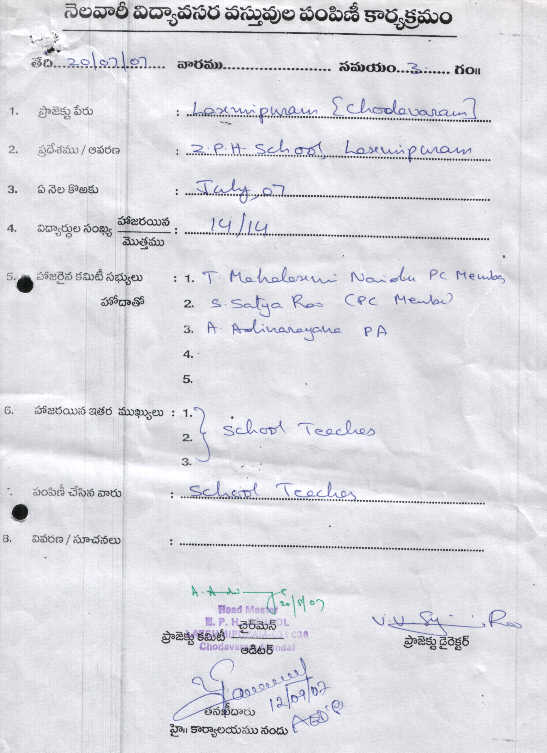 నెలవారీ విద్యావసర వస్తువుల పంపిణీ కార్యక్రమం
తేది....20/07/07.... వారము........................ సమయం...3...... గం॥
1. ప్రాజెక్టు పేరు : Laxmipuram [Chodavaram]
2. ప్రదేశము / ఆవరణ : Z.P.H. School, Laxmipuram
3. ఏ నెల కొఱకు : July, 07
4. విద్యార్థుల సంఖ్య హాజరయిన / మొత్తము : 14/14
5. హాజరైన కమిటీ సభ్యులు : 1. T. Mahalaxmi Naidu PC Member
హోదాతో 2. S. Satya Rao (PC Member)
3. A. Adinarayana PA
4.
5.
6. హాజరయిన ఇతర ముఖ్యులు : 1.
2. School Teacher
3.
7. పంపిణీ చేసిన వారు : School Teacher
8. వివరణ / సూచనలు :
Head Master
Z. P. H. SCHOOL
Chodavaram Mandal
ప్రాజెక్టు కమిటీ చైర్‌మెన్ / ఆడిటర్
ప్రాజెక్టు డైరెక్టర్
12/09/07
తనఖీదారు
హై॥ కార్యాలయము నందు